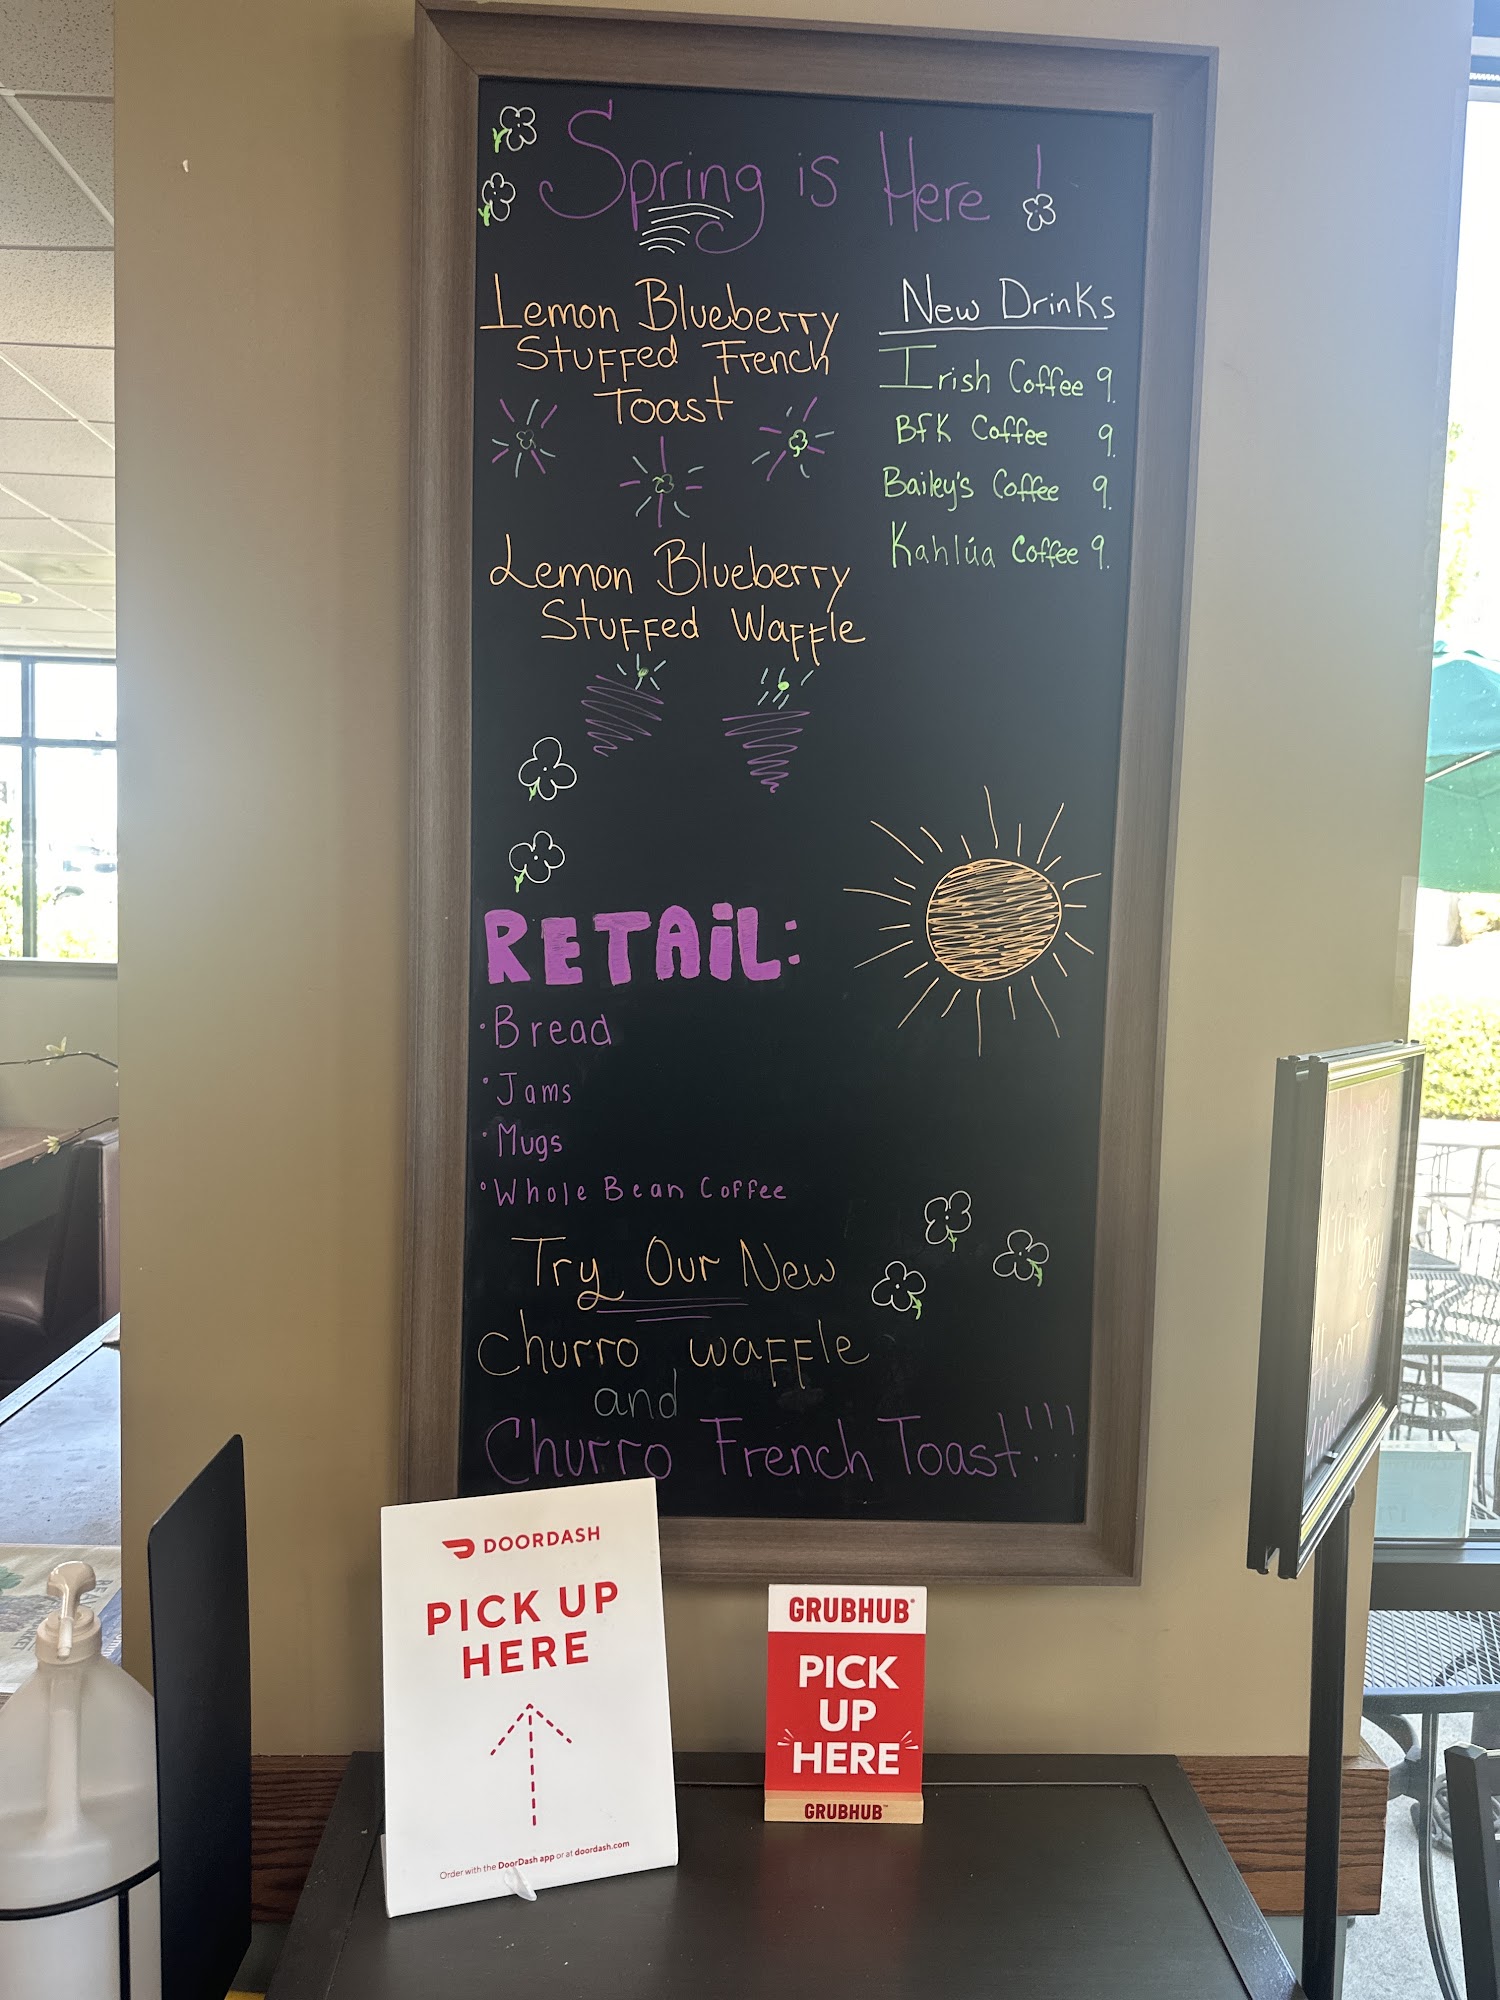 Spring is Here!
Lemon Blueberry
Stuffed French
Toast
Lemon Blueberry
Stuffed Waffle
New Drinks
Irish Coffee 9.
BFK Coffee 9.
Bailey's Coffee 9.
Kahlúa Coffee 9.
RETAiL:
·Bread
·Jams
·Mugs
·Whole Bean Coffee
Try Our New
Churro waffle
and
Churro French Toast!!!
DOORDASH
PICK UP
HERE
Order with the DoorDash app or at doordash.com
GRUBHUB
PICK
UP
HERE
GRUBHUB™